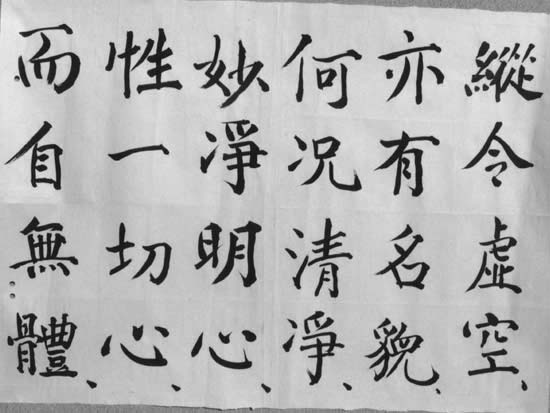 縱令虛空、
亦有名貌、
何況清淨、
妙淨明心、
性一切心、
而自無體、